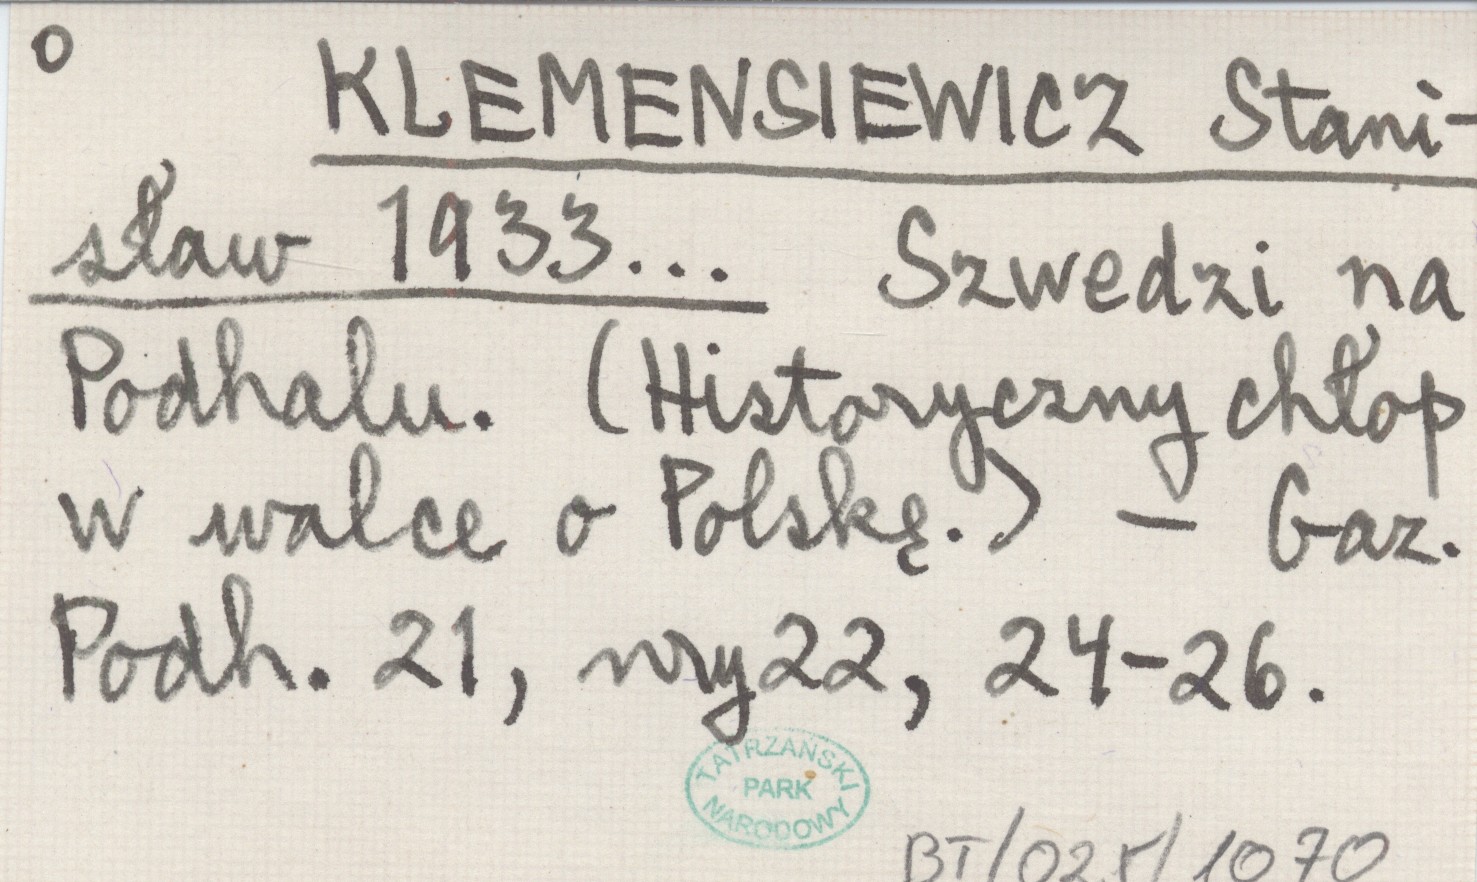 o KLEMENSIEWICZ Stani-
sław 1933... Szwedzi na
Podhalu. (Historyczny chłop
w walce o Polskę.) – Gaz.
Podh. 21, nry 22, 24-26.
TATRZAŃSKI
PARK
NARODOWY
1070